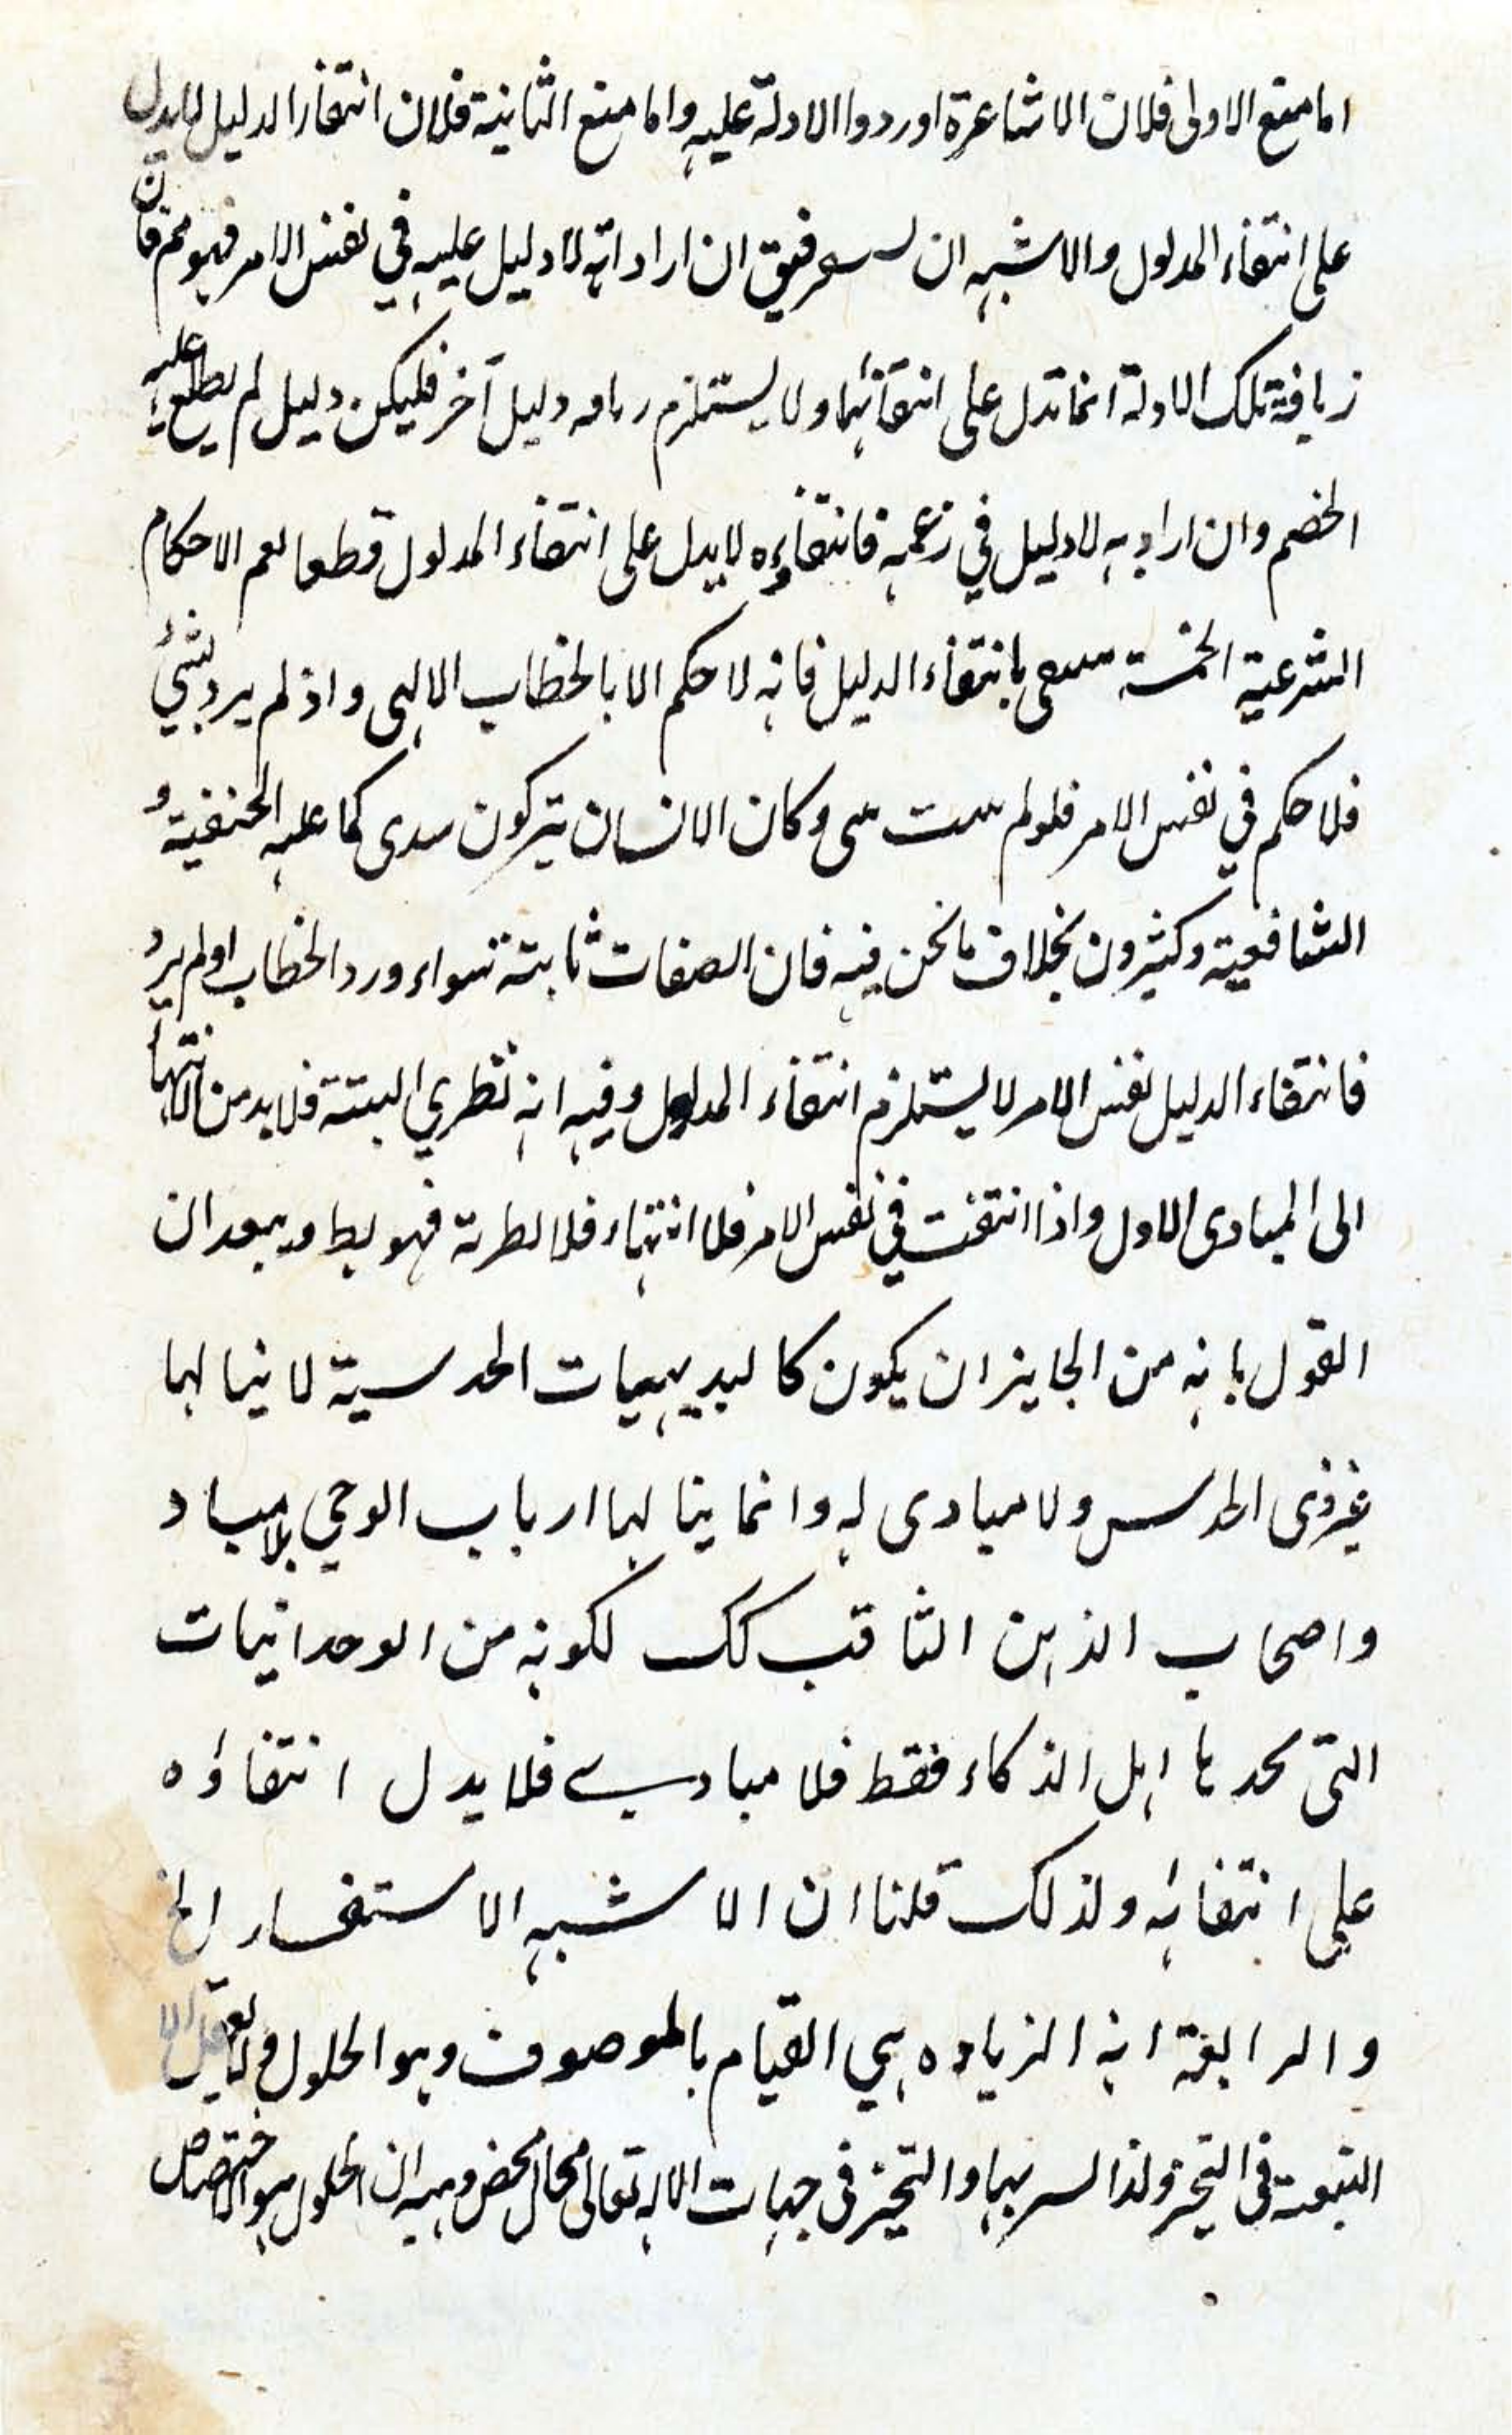 اما منع الاولى فلان الاشاعرة اوردوا الادلة عليه واما منع الثانية فلان انتفاء الدليل لا يدل
على انتفاء المدلول والاشبه ان ان اراد انه لا دليل عليه في نفس الامر فهو مم فان
زيافة تلك الادلة انما تدل على انتفائها ولا يستلزم دليل آخر فليكن دليل لم يطلع عليه
الخصم وان اراد به لا دليل في زعمه فانتفاؤه لا يدل على انتفاء المدلول قطعا نعم الاحكام
الشرعية الخمسة بانتفاء الدليل فانه لا حكم الا بالخطاب الالهى واذ لم يرد بشيء
فلا حكم في نفس الامر فلو لم وكان الانسان يتركون سدى كما عليه الحنفية و
الشافعية وكثيرون بخلاف ما نحن فيه فان الصفات ثابتة سواء ورد الخطاب او لم يرد
فانتفاء الدليل لنفس الامر لا يستلزم انتفاء المدلول وفيه انه نظري البتة فلا بد من الانتهاء
الى المبادى الاول واذا انتفت في نفس الامر فلا انتهاء فلا نظرية فهو بط يبعد ان
القول بانه من الجايز ان يكون كالبديهيات الحدسية لا ينالها
غير ذى الحدس ولا مبادى له وانما ينالها ارباب الوحي بلا مباد
واصحاب الذهن الثاقب كك لكونه من الوحدانيات
التى اهل الذكاء فقط فلا مبادي فلا يدل انتفاؤه
على انتفائه ولذلك قلنا ان الاشبه الاستفسار الخ
والرابعة انه الزياده هي القيام بالموصوف وهو الحلول ولا يعقل الا
التبعية فى التحيز ولذا بها والتحيز فى جهات الاله تعالى محال محض وفيه ان الحلول هو الاختصاص